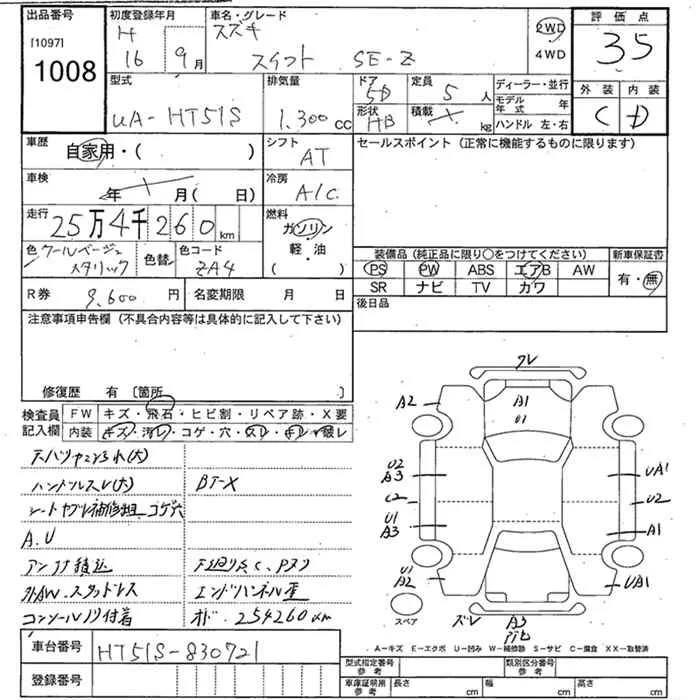 出品番号 初度登録年月 車名・グレード 評価点
[1097] H スズキ 2WD 35
1008 16 9月 スイフト SE-Z 4WD
外装 内装
C D
型式 排気量 ドア 定員 ディーラー・並行
UA-HT51S 1.300cc 5D 5人 モデル年式 年
形状 積載 ハンドル 左・右
HB kg
車歴 自家用・( ) シフト AT セールスポイント(正常に機能するものに限ります)
車検 年 月( 日) 冷房 A/C
走行 25万4千260km 燃料 ガソリン
軽・油
( )
色 クールベージュメタリック 色替 色コード ZA4
装備品(純正品に限り○をつけてください) 新車保証書
PS PW ABS エアB AW 有・無
SR ナビ TV カワ
R券 9.600円 名変期限 月 日 後日品
注意事項申告欄(不具合内容等は具体的に記入して下さい)
修復歴 有 〔箇所 〕
検査員記入欄 FW キズ・飛石・ヒビ割・リペア跡・X要
内装 キズ・汚レ・コゲ・穴・スレ・キレ・破レ
ハンドルスレ(大) BT-X
A.U
エンドパネル歪
コンソールノリ付着 オド.254260km
クレ
A2 A1
U1
U2 A3 UA1
C2 U2
U1 A3 A1
U1 A2 UA1
スペア ズレ A3
A-キズ E-エクボ U-凹み W-補修跡 S-サビ C-腐食 XX-取替済
車台番号 HT51S-830721
登録番号
型式指定番号 参考 類別区分番号 参考
車庫証明用 参考 長さ cm 幅 cm 高さ cm